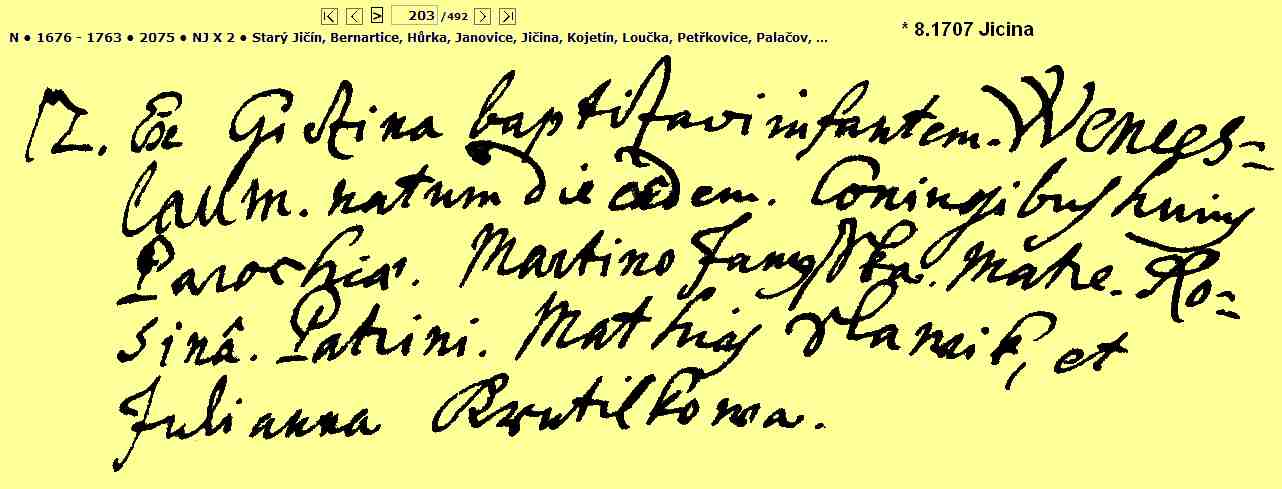 203 /492
N ● 1676 - 1763 ● 2075 ● NJ X 2 ● Starý Jičín, Bernartice, Hůrka, Janovice, Jičina, Kojetín, Loučka, Petřkovice, Palačov, ...
* 8.1707 Jicina
12. Ex Gitzina baptisavi infantem. Wences=
laum. natum die eadem. Coniugibus huius
Parochiae. Martino matre. Ro=
sinâ. Patrini. Mathias et
Julianna